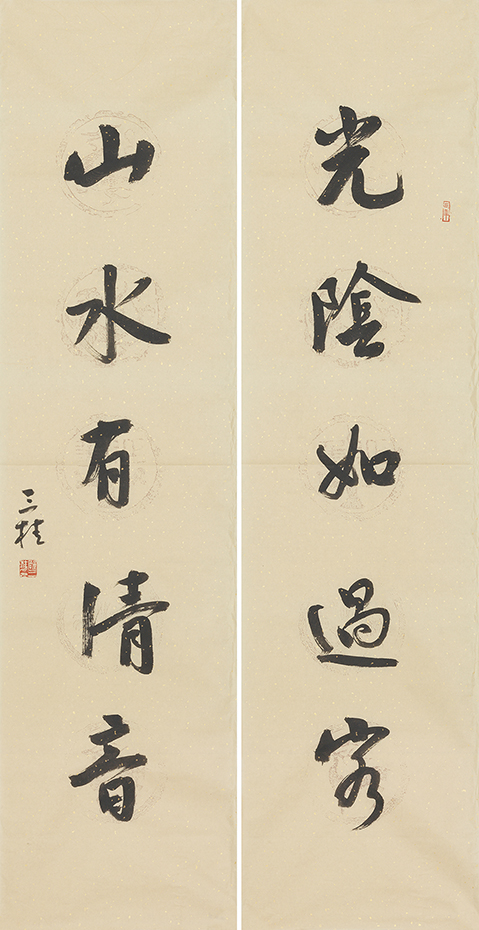 光陰如過客
山水有清音
三桂